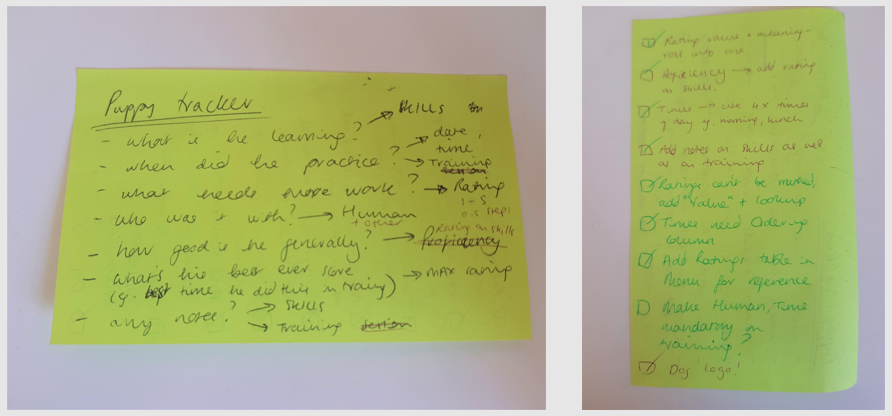 Puppy tracker
- what is he learning? → Skills
- when did he practice? → date, time
→ Training session
- what needs more work? → Rating
1-5
0.5 steps
- who was it with? → Human
+ other
- how good is he generally? → Rating on skills
Proficiency
- what's his best ever score → max rating
(eg. best time he did this in training)
- any notes? → Skills
→ Training session
Rating value + meaning -
roll into one
Proficiency → add rating
on skills.
Times → use 4x times
of day eg. morning, lunch
Add notes on skills as well
as on training
Ratings can't be marked,
add "value" + lookup
Times need Ordering
column
Add Ratings table in
Menu for reference
Make Human, Time
mandatory on
training?
Dog logo!